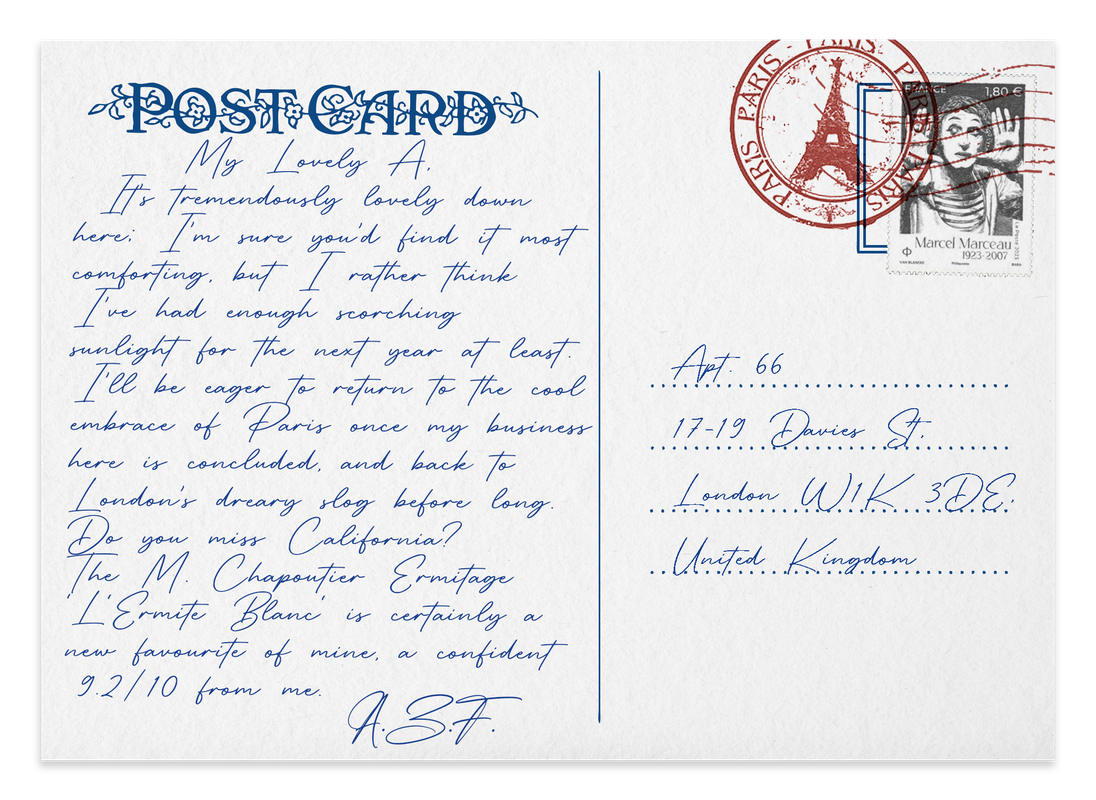 POST CARD
My Lovely A,
It's tremendously lovely down
here; I'm sure you'd find it most
comforting, but I rather think
I've had enough scorching
sunlight for the next year at least.
I'll be eager to return to the cool
embrace of Paris once my business
here is concluded, and back to
London's dreary slog before long.
Do you miss California?
The M. Chapoutier Ermitage
'L'Ermite Blanc' is certainly a
new favourite of mine, a confident
9.2/10 from me.
A.Z.F.
PARIS - PARIS - PARIS PARIS PARIS
FRANCE 1,80 €
Marcel Marceau
1923-2007
Apt. 66
17-19 Davies St,
London W1K 3DE,
United Kingdom